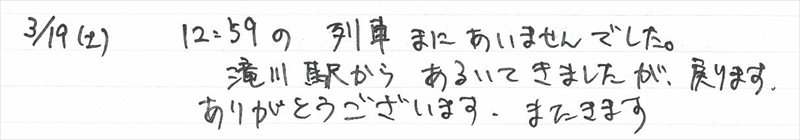 3/19(土) 12:59の 列車 まに あいませんでした。
滝川駅から あるいて きましたが、戻ります。
ありがとうございます. またきます